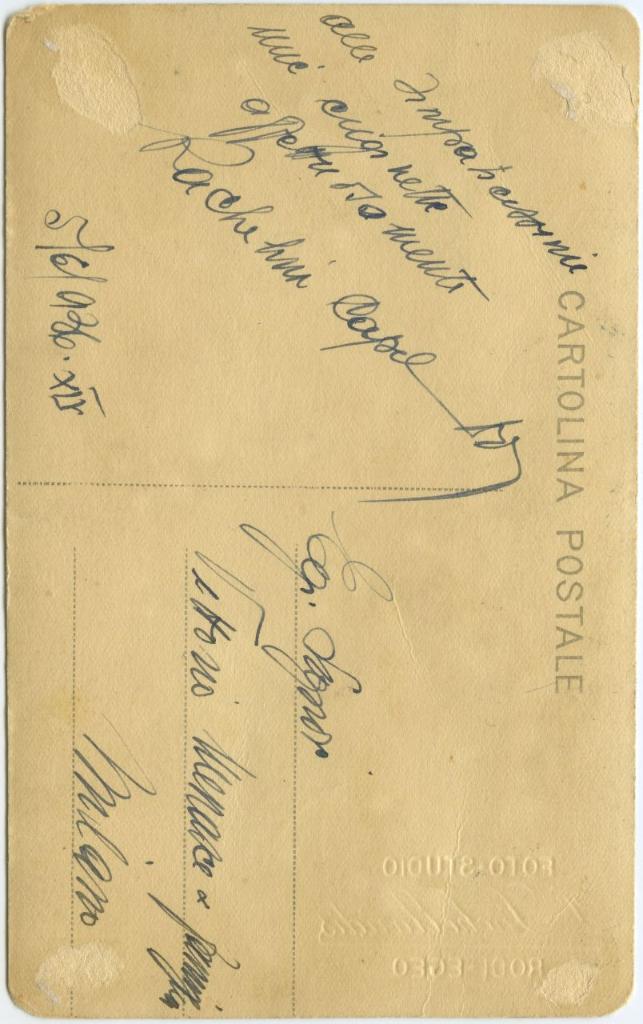 CARTOLINA POSTALE
alle
mie cuginette
affettuosamente
Rachelini Capel
5/6/936. XIV
Egr. Signor
Menasce e famiglia
Milano
FOTO-STUDIO
RODI-EGEO